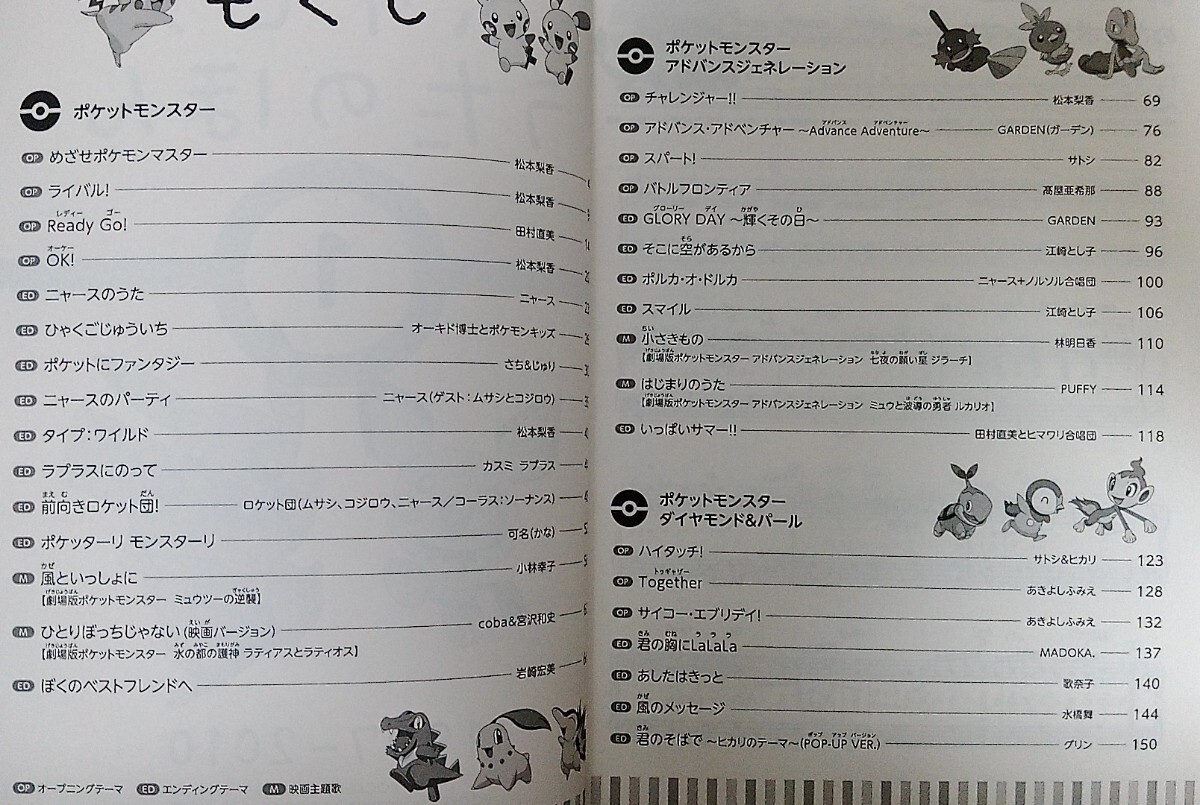 もくじ
ポケットモンスター
OP めざせポケモンマスター 松本梨香
OP ライバル! 松本梨香
OP Ready Go! 田村直美
OP OK! 松本梨香
ED ニャースのうた ニャース
ED ひゃくごじゅういち オーキド博士とポケモンキッズ
ED ポケットにファンタジー さち&じゅり
ED ニャースのパーティ ニャース(ゲスト:ムサシとコジロウ)
ED タイプ:ワイルド 松本梨香
ED ラプラスにのって カスミ ラプラス
ED 前向きロケット団! ロケット団(ムサシ、コジロウ、ニャース/コーラス:ソーナンス)
ED ポケッターリ モンスターリ 可名(かな)
M 風といっしょに 小林幸子
【劇場版ポケットモンスター ミュウツーの逆襲】
M ひとりぼっちじゃない(映画バージョン) coba&宮沢和史
【劇場版ポケットモンスター 水の都の護神 ラティアスとラティオス】
ED ぼくのベストフレンドへ 岩崎宏美
OP オープニングテーマ ED エンディングテーマ M 映画主題歌
ポケットモンスター
アドバンスジェネレーション
OP チャレンジャー!! 松本梨香 69
OP アドバンス・アドベンチャー ~Advance Adventure~ GARDEN(ガーデン) 76
OP スパート! サトシ 82
OP バトルフロンティア 髙屋亜希那 88
ED GLORY DAY ~輝くその日~ GARDEN 93
ED そこに空があるから 江崎とし子 96
ED ポルカ・オ・ドルカ ニャース+ノルソル合唱団 100
ED スマイル 江崎とし子 106
M 小さきもの 林明日香 110
【劇場版ポケットモンスター アドバンスジェネレーション 七夜の願い星 ジラーチ】
M はじまりのうた PUFFY 114
【劇場版ポケットモンスター アドバンスジェネレーション ミュウと波導の勇者 ルカリオ】
ED いっぱいサマー!! 田村直美とヒマワリ合唱団 118
ポケットモンスター
ダイヤモンド&パール
OP ハイタッチ! サトシ&ヒカリ 123
OP Together あきよしふみえ 128
OP サイコー・エブリデイ! あきよしふみえ 132
ED 君の胸にLaLaLa MADOKA. 137
ED あしたはきっと 歌奈子 140
ED 風のメッセージ 水橋舞 144
ED 君のそばで ~ヒカリのテーマ~(POP-UP VER.) グリン 150